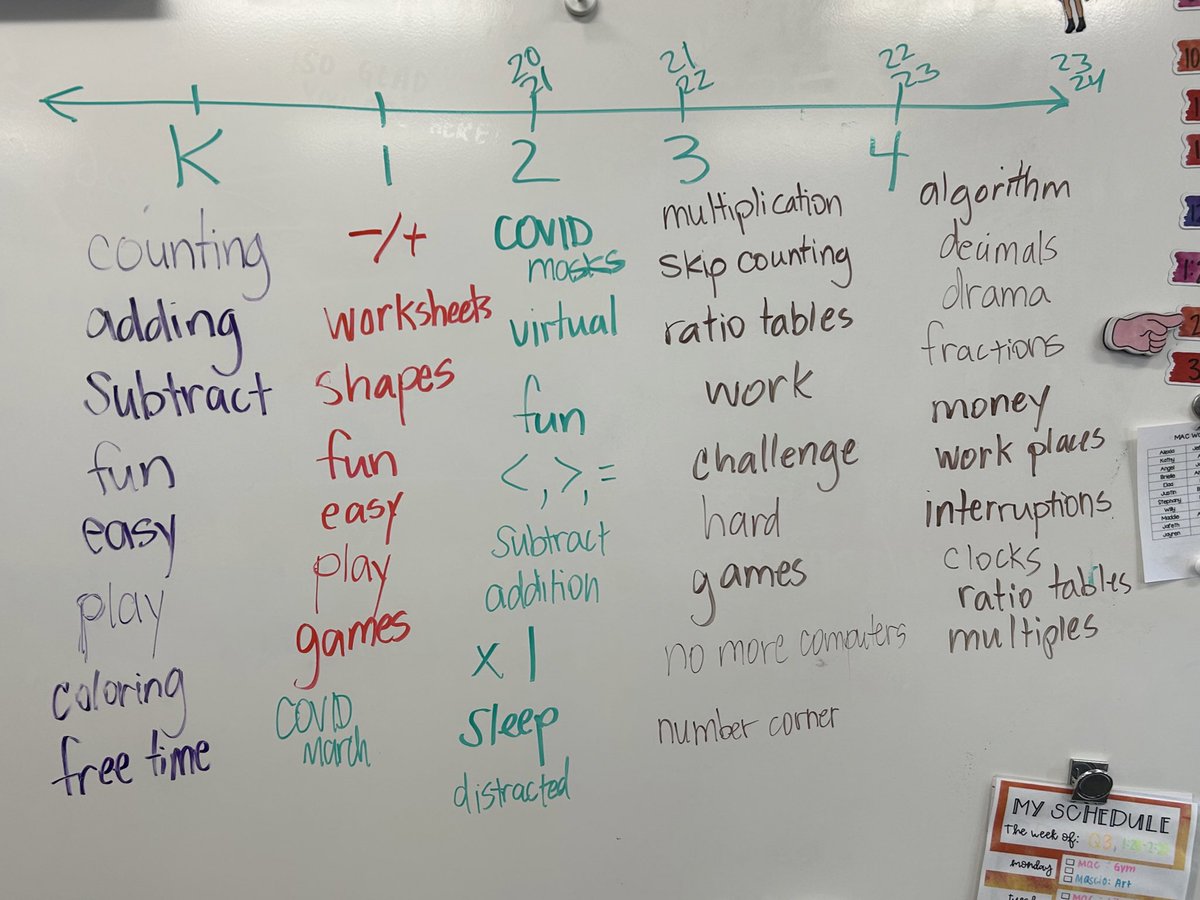 20
21
21
22
22
23
23
24
K
1
2
3
4
counting
adding
Subtract
fun
easy
play
coloring
free time
-/+
worksheets
shapes
fun
easy
play
games
COVID
march
COVID
masks
virtual
fun
<, >, =
Subtract
addition
x 1
Sleep
distracted
multiplication
skip counting
ratio tables
work
challenge
hard
games
no more computers
number corner
algorithm
decimals
drama
fractions
money
work places
interruptions
clocks
ratio tables
multiples
10
MY SCHEDULE
The week of: Q3,
monday
Mac - Gym
Mascio: Art